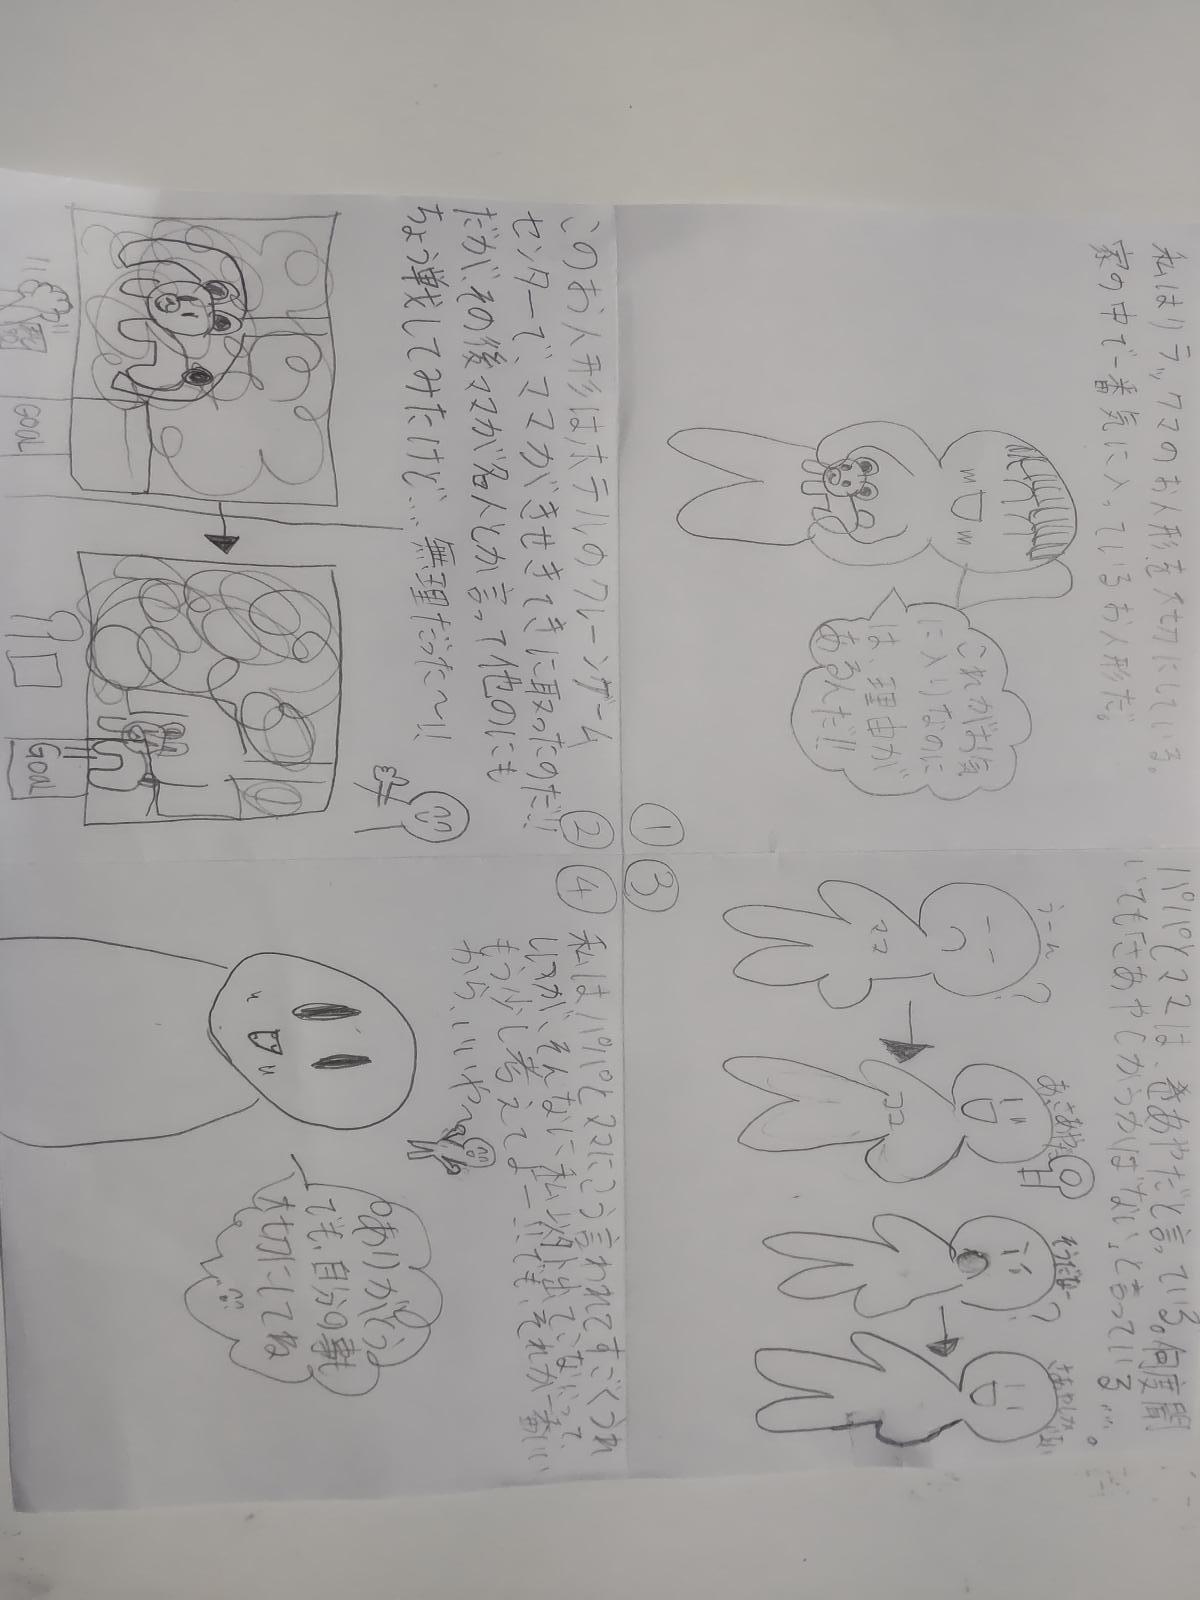 私はリラックマのお人形を大切にしている。
家の中で一番気に入っているお人形だ。
これがお気
に入りなのに
は、理由が
あるんだ!!
①
このお人形はホテルのクレーンゲーム
センターで、ママがきせきてきに取ったのだ!!
だが、その後ママが名人とか言って他のにも
ちょう戦してみたけど…無理だった〜!!
GOAL
GOAL
②
③
パパとママは、きあやだと言っている。何度聞
いても「きあやしかうかばない」と言っている…。
うーん
?
ママ
ママ
?
④
私はパパとママにこう言われてすごくうれ
しいが、そんなに私以外出てこないって、
もう少し考えてよー!!でも、それが一番いい
から、いいや〜
ありがとう
でも、自分の事
大切にしてね